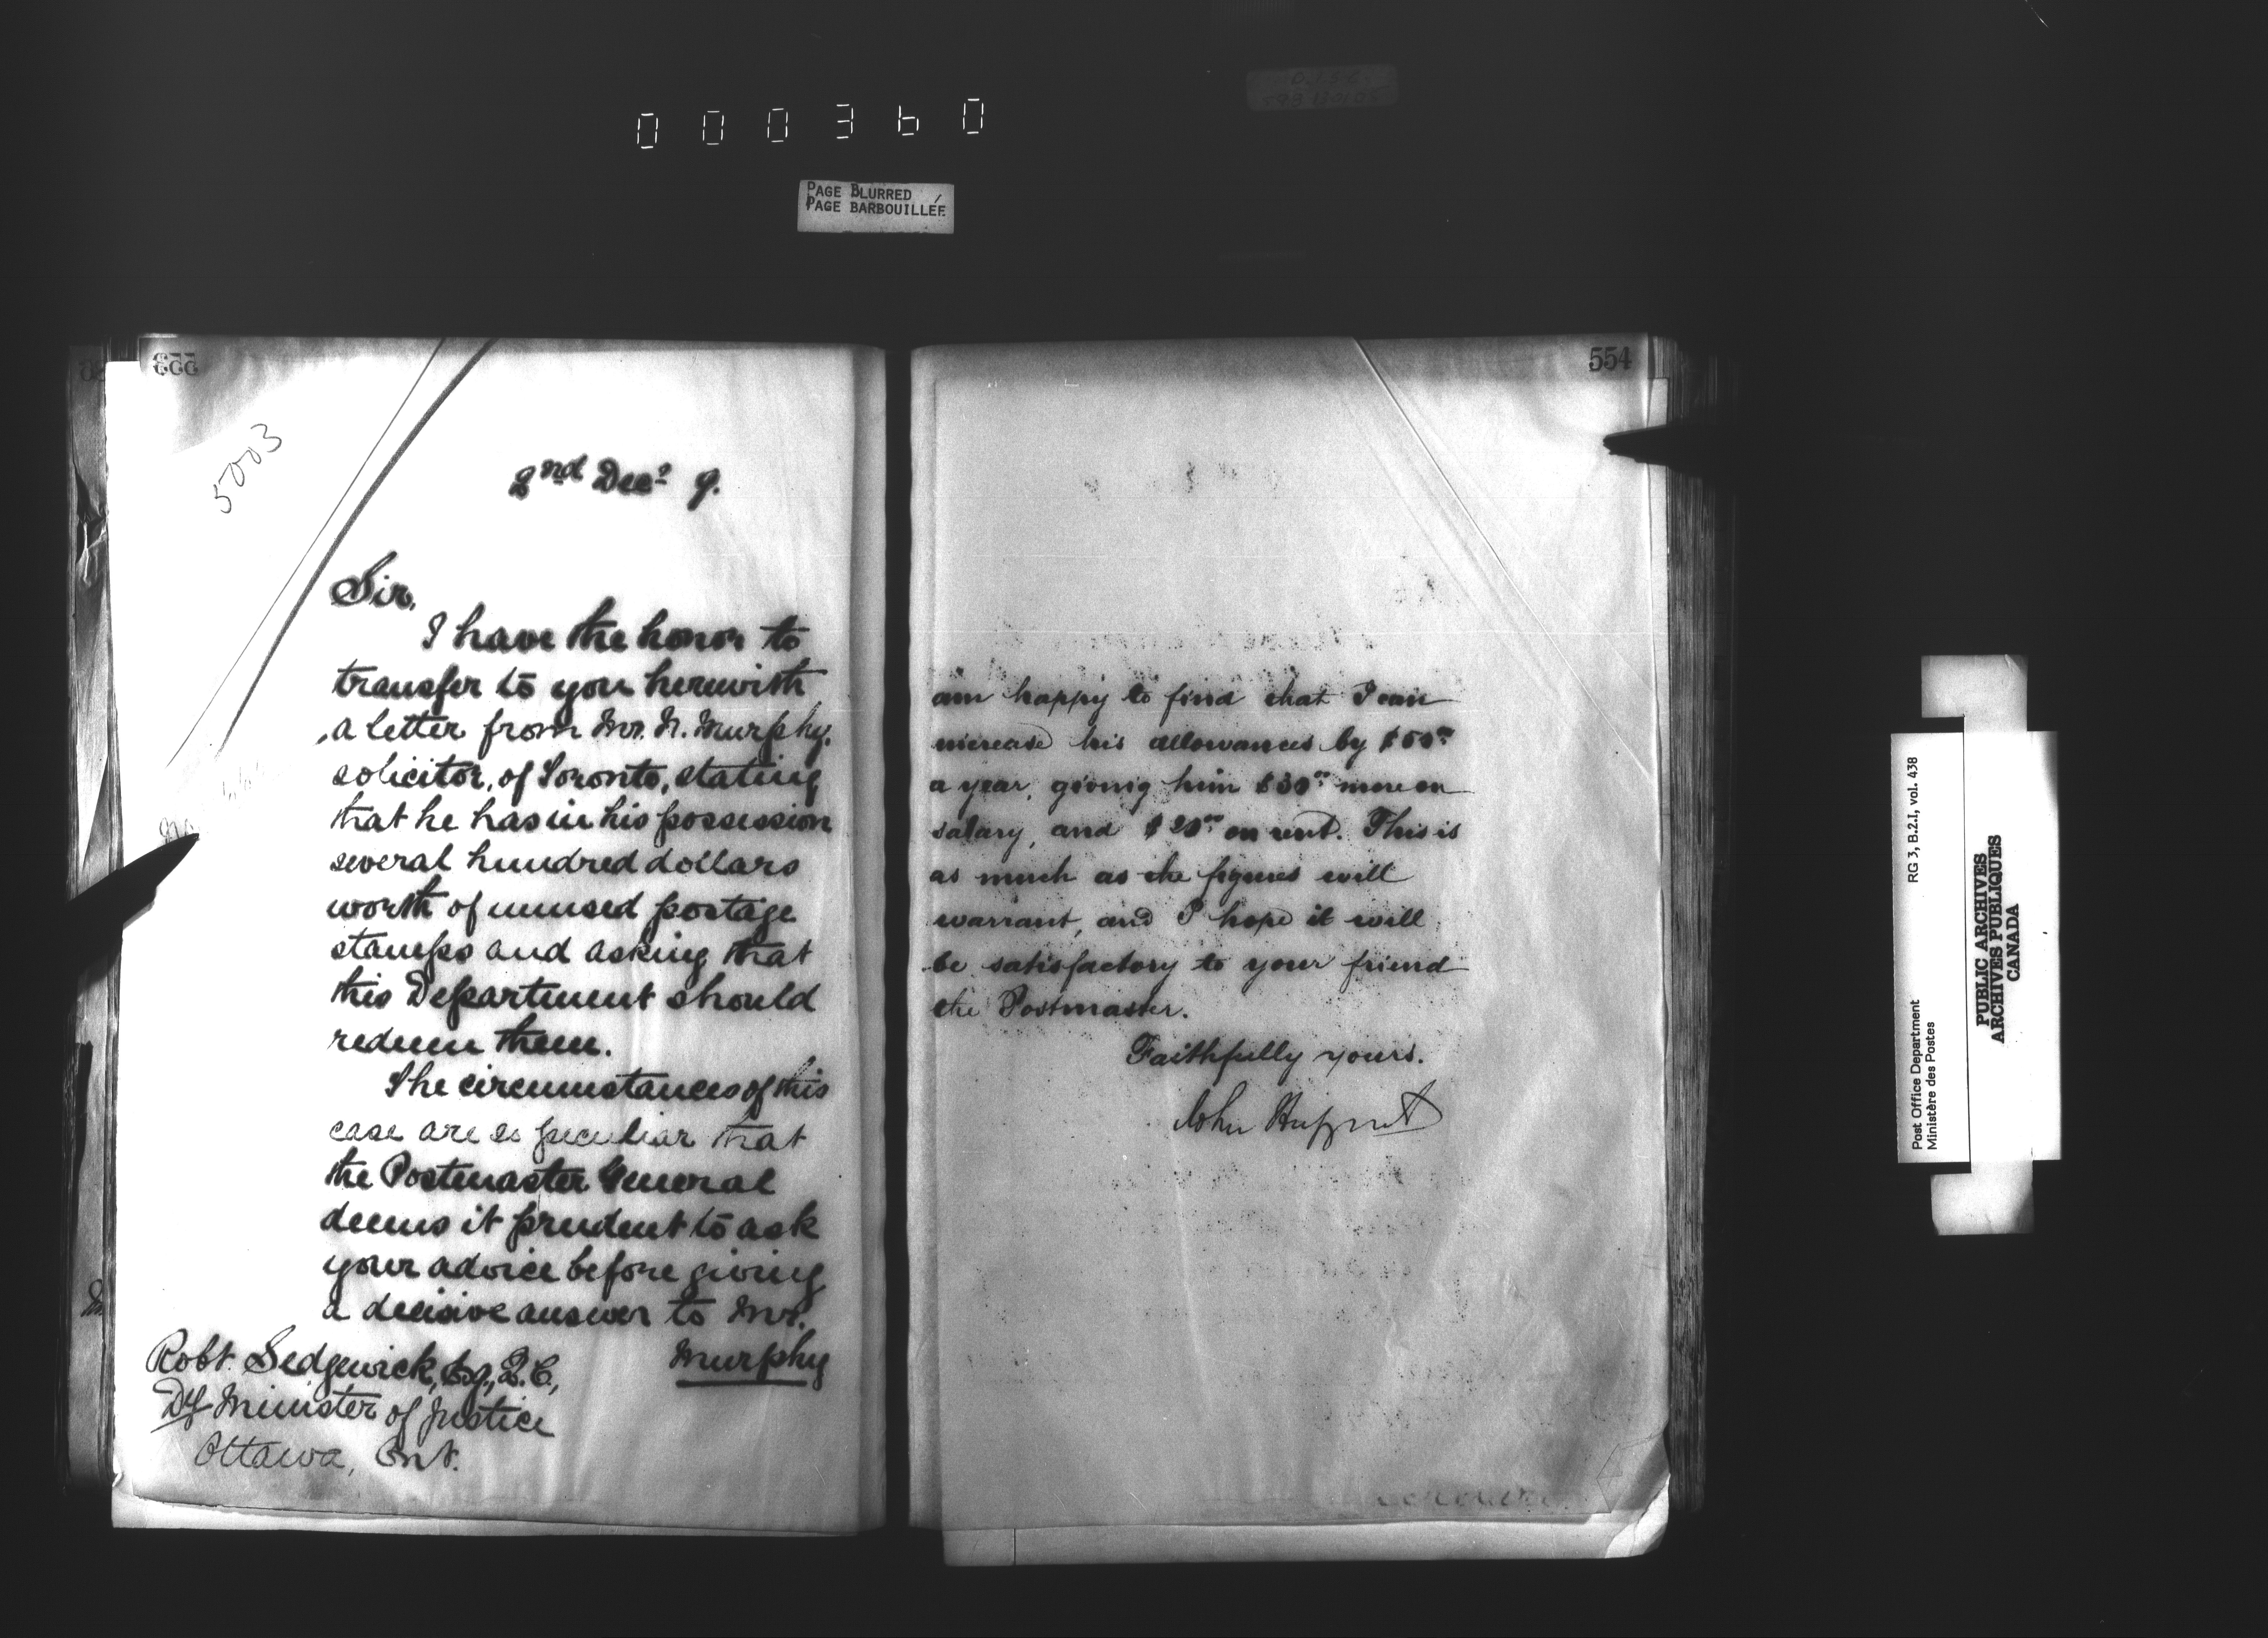 000360
PAGE BLURRED
PAGE BARBOUILLÉE
553
5003
2nd Decr 9.
Sir,
I have the honor to
transfer to you herewith
a letter from Mr. N. Murphy,
solicitor, of Toronto, stating
that he has in his possession
several hundred dollars
worth of unused postage
stamps and asking that
this Department should
redeem them.
The circumstances of this
case are so peculiar that
the Postmaster General
deems it prudent to ask
your advice before giving
a decisive answer to Mr.
Murphy
Robt. Sedgewick, Esq., Q.C.,
Dy Minister of Justice
Ottawa, Ont.
554
am happy to find that I can
increase his allowances by $50.00
a year, giving him $30.00 more on
salary, and $20.00 on rent. This is
as much as the figures will
warrant, and I hope it will
be satisfactory to your friend
the Postmaster.
Faithfully yours.
John Haggart
Post Office Department
Ministère des Postes
RG 3, B.2.I, vol. 438
PUBLIC ARCHIVES
ARCHIVES PUBLIQUES
CANADA